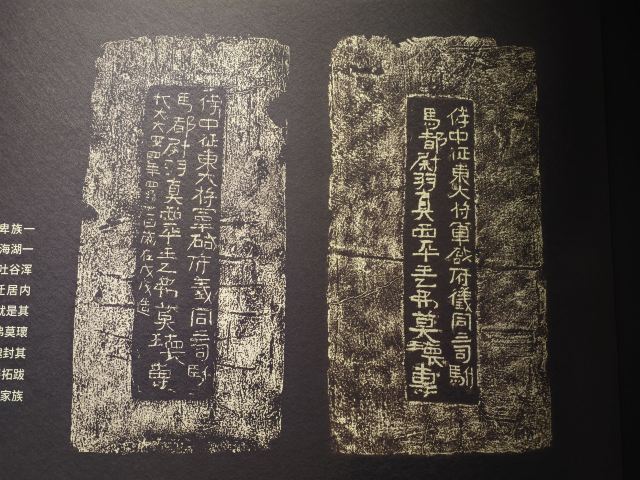 卑族一
海湖一
吐谷浑
迁居内
就是其
弗莫瓌
封其
拓跋
家族
侍中征東大将軍啓府義同三司駙
馬都尉羽真西平王之弗莫瓌專
代大太安四年四月日歲在戊戌造
侍中征東大将軍啓府儀同三司駙
馬都尉羽真西平王之弗莫瓌專